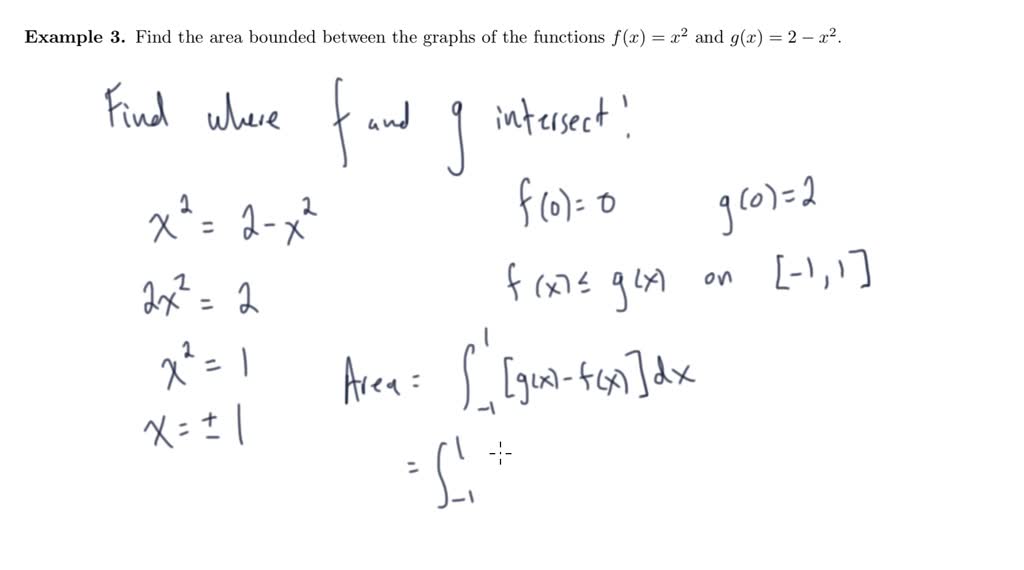 Example 3. Find the area bounded between the graphs of the functions f(x) = x² and g(x) = 2 − x².
Find where f and g intersect!
x² = 2-x²
2x² = 2
x² = 1
x = ± 1
f(0)= 0 g(0)=2
f(x) ≤ g(x) on [-1,1]
Area = ∫₋₁¹ [g(x)-f(x)]dx
= ∫₋₁¹